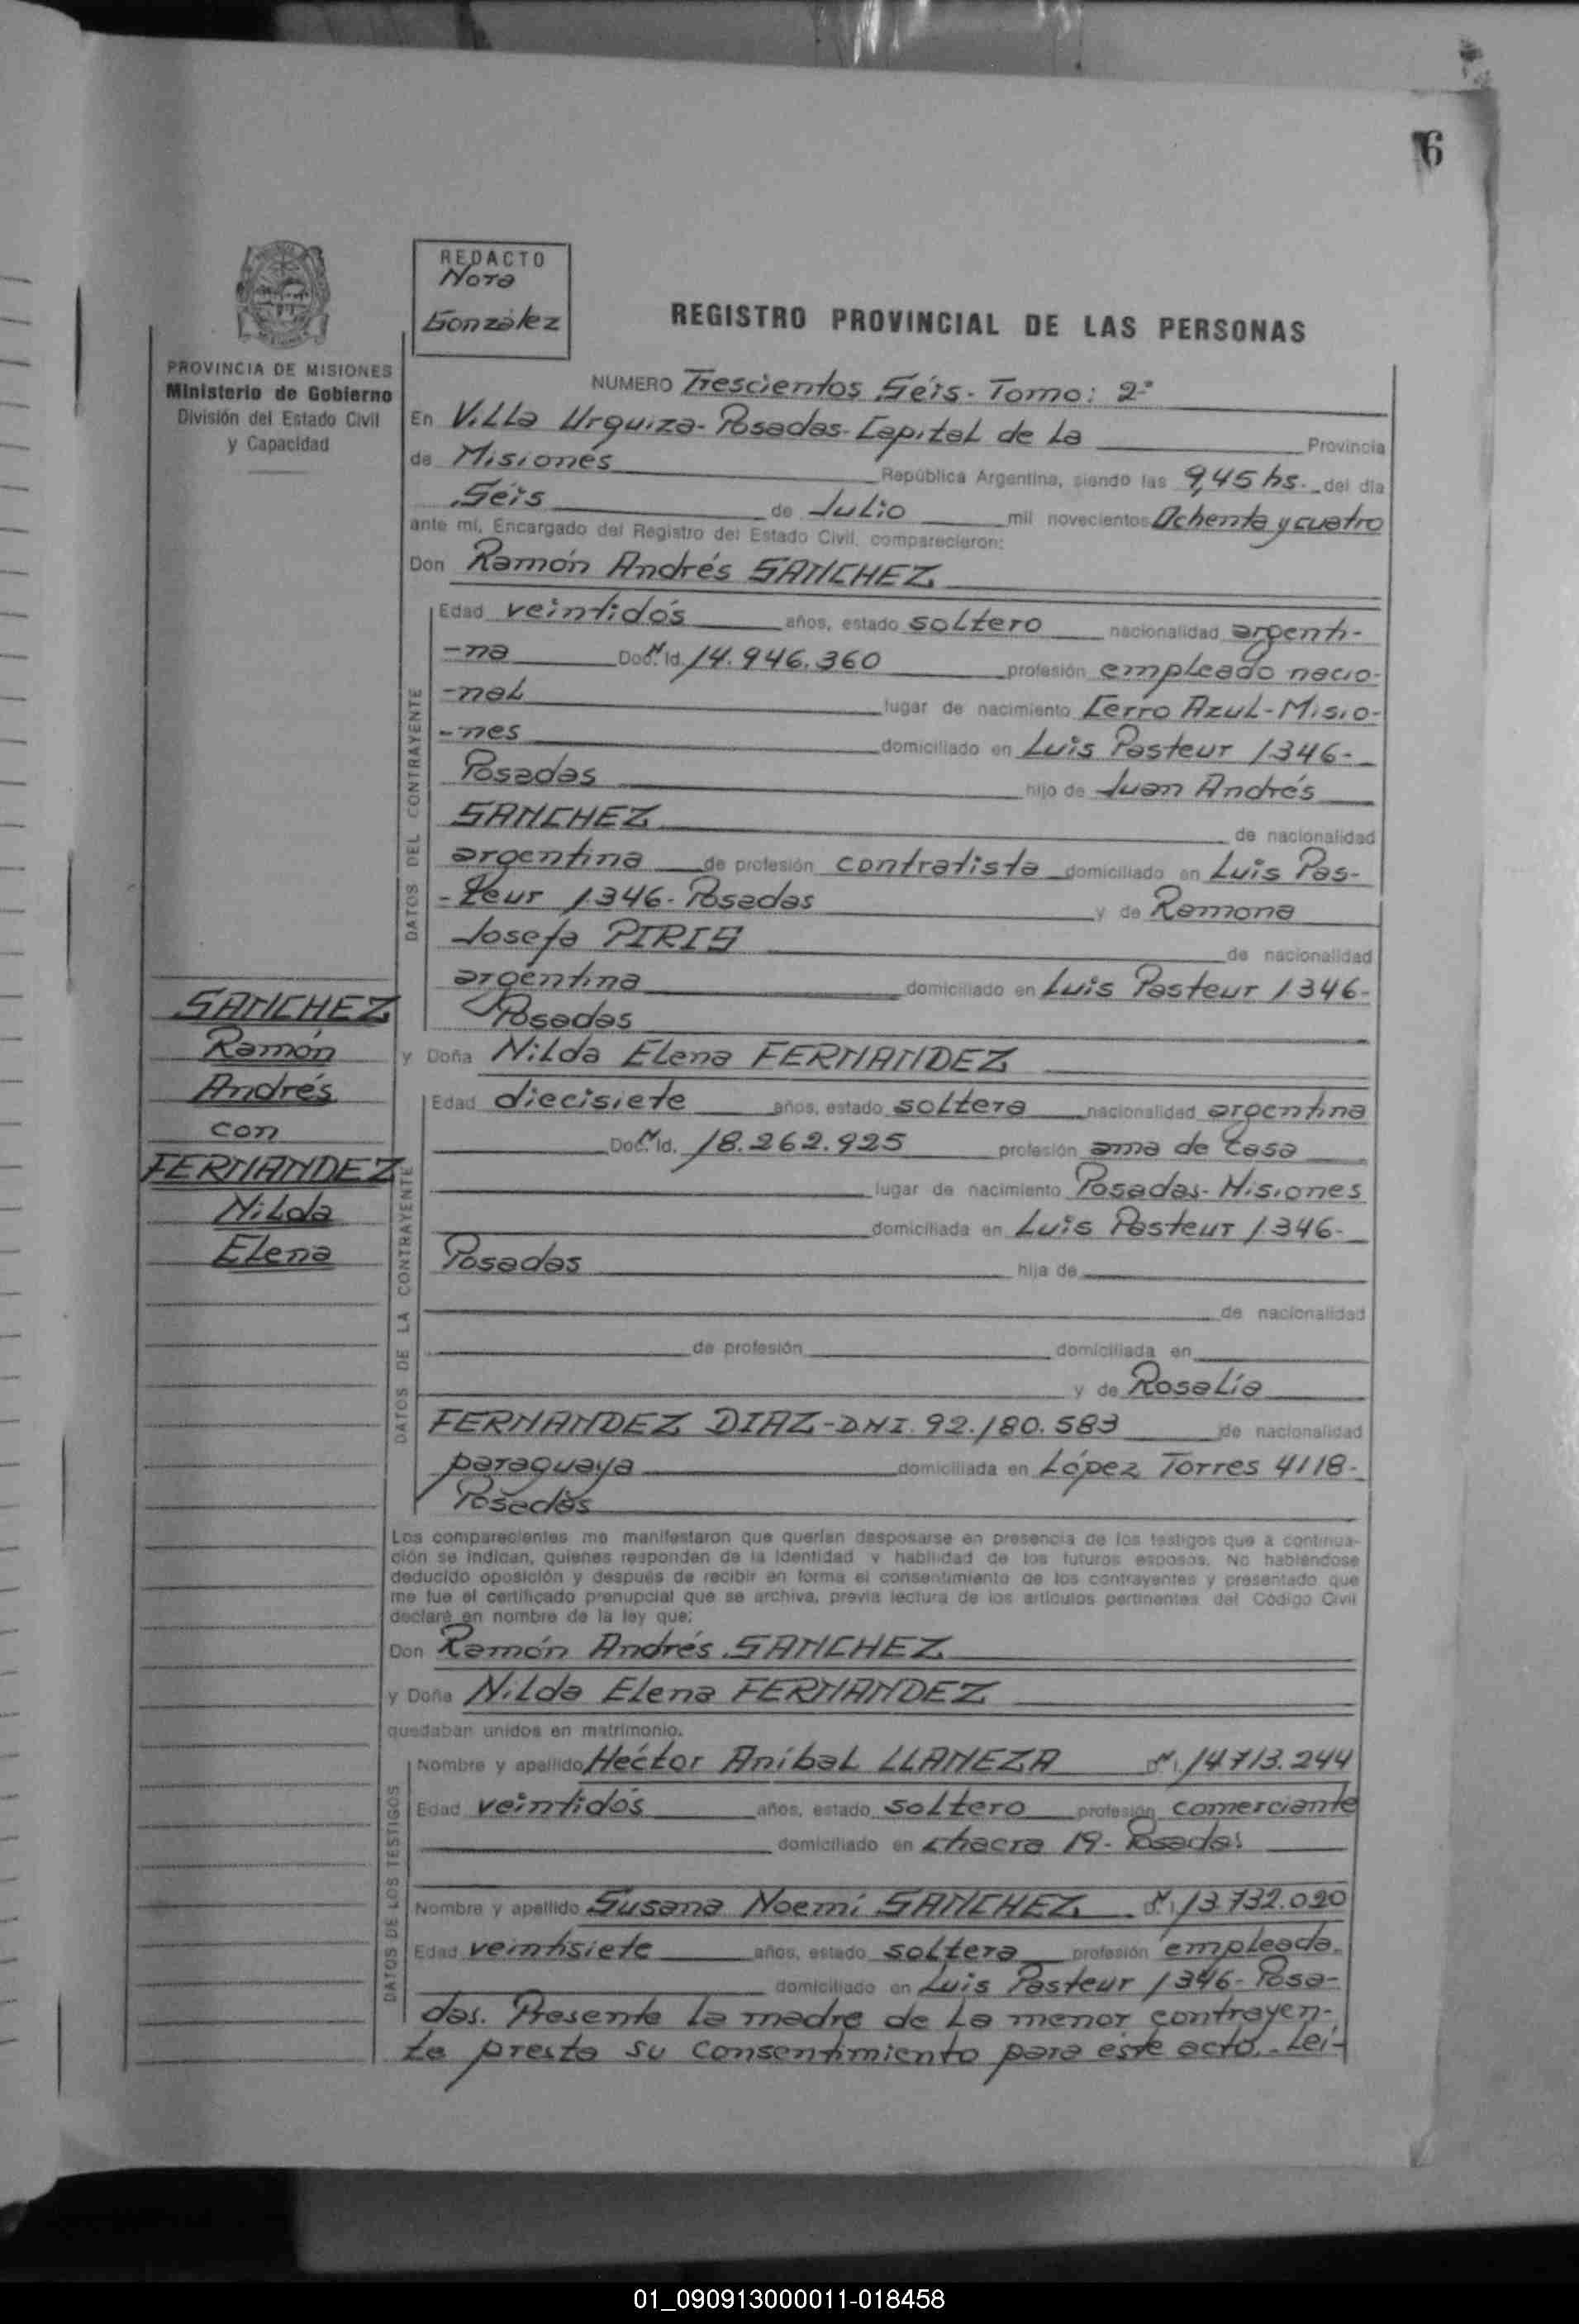 6
REDACTO
Nora
González
REGISTRO PROVINCIAL DE LAS PERSONAS
PROVINCIA DE MISIONES
Ministerio de Gobierno
División del Estado Civil
y Capacidad
NUMERO Trescientos Séis- Tomo: 2º
En Villa Urquiza- Posadas- Capital de La Provincia
de Misiones República Argentina, siendo las 9,45 hs. del día
Séis de Julio mil novecientos Ochenta y cuatro
ante mí, Encargado del Registro del Estado Civil, comparecieron:
Don Ramón Andrés SANCHEZ
Edad veintidós años, estado soltero nacionalidad argenti-
-na Doc. Id. 14.946.360 profesión empleado nacio-
-nal lugar de nacimiento Cerro Azul-Misio-
-nes domiciliado en Luis Pasteur 1346-
Posadas hijo de Juan Andrés
SANCHEZ de nacionalidad
argentina de profesión contratista domiciliado en Luis Pas-
-teur 1346- Posadas y de Ramona
Josefa PIRIS de nacionalidad
argentina domiciliado en Luis Pasteur 1346-
Posadas
SANCHEZ
Ramón
Andrés
con
FERNANDEZ
Nilda
Elena
y Doña Nilda Elena FERNANDEZ
Edad diecisiete años, estado soltera nacionalidad argentina
Doc. Id. 18.262.925 profesión ama de casa
lugar de nacimiento Posadas- Misiones
domiciliada en Luis Pasteur 1346-
Posadas hija de
de nacionalidad
de profesión domiciliada en
y de Rosalía
FERNANDEZ DIAZ-DNI. 92.180.583 de nacionalidad
paraguaya domiciliada en López Torres 4118-
Posadas
DATOS DEL CONTRAYENTE
DATOS DE LA CONTRAYENTE
Los comparecientes me manifestaron que querían desposarse en presencia de los testigos que a continua-
ción se indican, quienes responden de la identidad y habilidad de los futuros esposos. No habiéndose
deducido oposición y después de recibir en forma el consentimiento de los contrayentes y presentado que
me fue el certificado prenupcial que se archiva, previa lectura de los artículos pertinentes del Código Civil
declaré en nombre de la ley que:
Don Ramón Andrés SANCHEZ
y Doña Nilda Elena FERNANDEZ
quedaban unidos en matrimonio.
DATOS DE LOS TESTIGOS
Nombre y apellido Héctor Anibal LLANEZA 14.713.244
Edad veintidós años, estado soltero profesión comerciante
domiciliado en chacra 19- Posadas
Nombre y apellido Susana Noemí SANCHEZ 13.732.020
Edad veintisiete años, estado soltera profesión empleada
domiciliado en Luis Pasteur 1346- Posa-
das. Presente la madre de la menor contrayen-
te presta su consentimiento para este acto.- Leí-
01_090913000011-018458